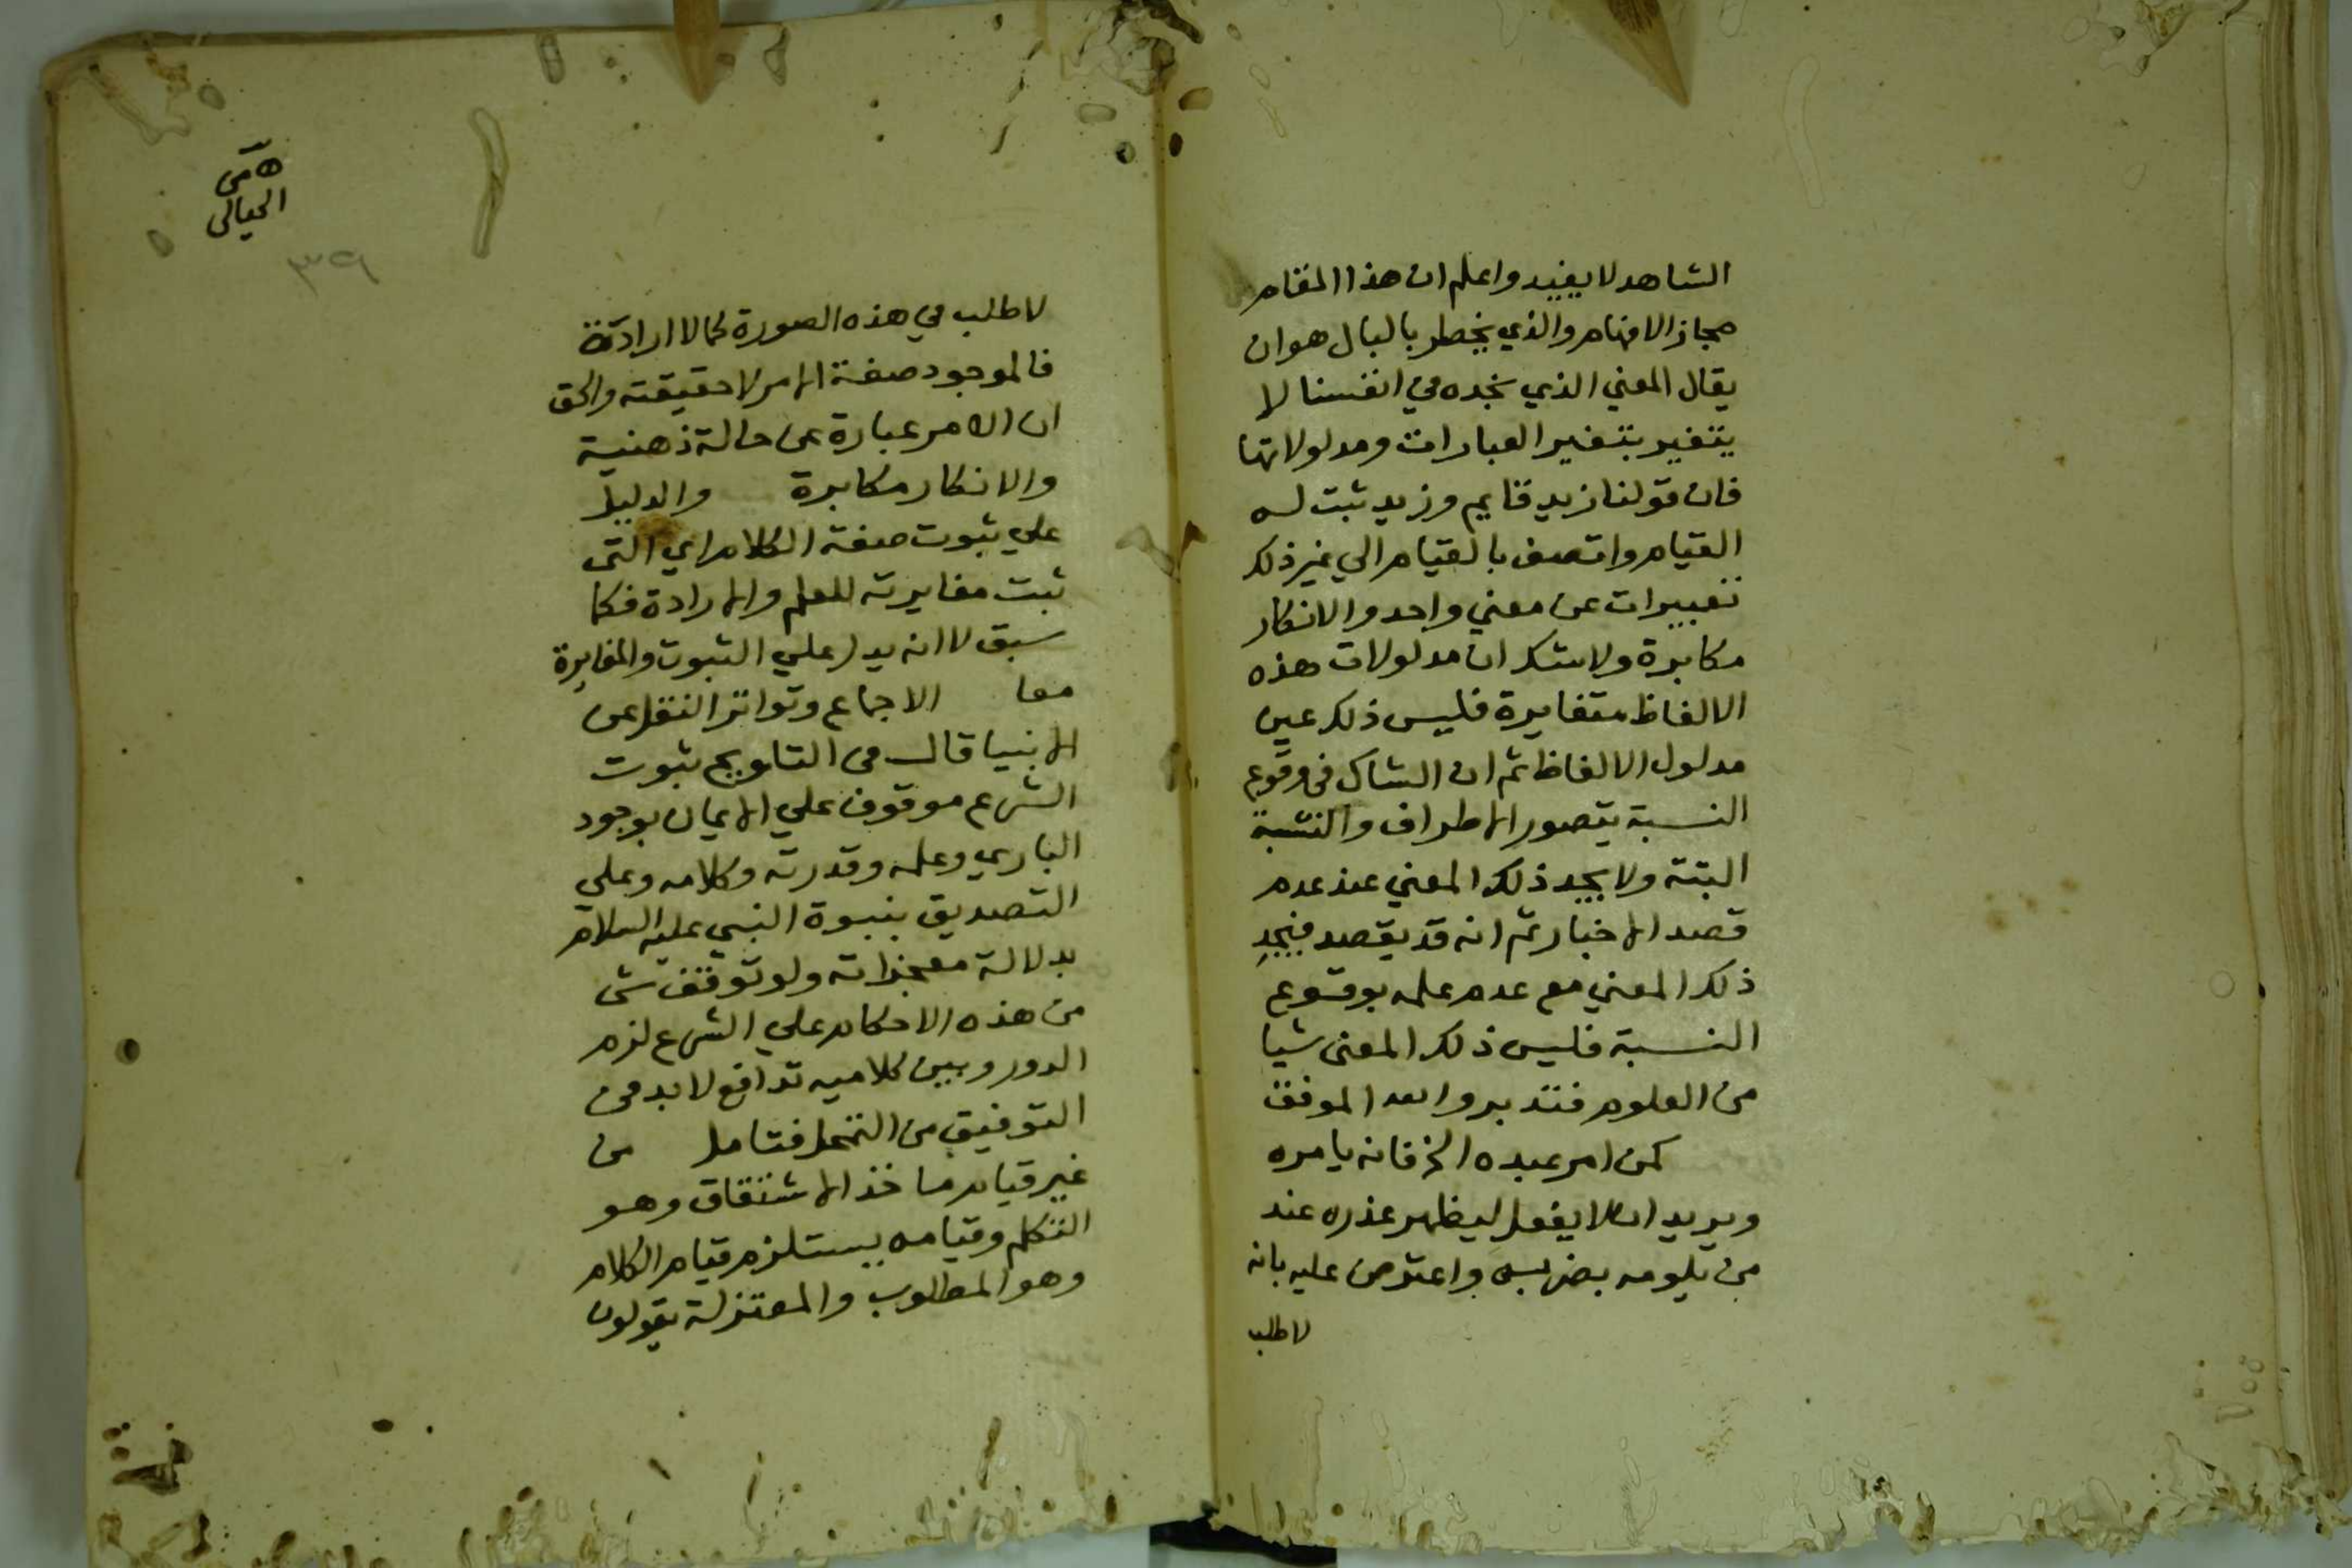 الشاهد لا يفيد واعلم ان هذا المقام
مجاز الافهام والذي يخطر بالبال هو ان
يقال المعني الذي نجده في انفسنا لا
يتغير بتغير العبارات ومدلولاتها
فان قولنا زيد قايم وزيد ثبت له
القيام واتصف بالقيام الي غير ذلك
تعبيرات عن معني واحد والانكار
مكابرة ولا شك ان مدلولات هذه
الالفاظ متغايرة فليس ذلك عين
مدلول الالفاظ ثم ان الشاك في وقوع
النسبة يتصور الاطراف والنسبة
البتة ولا يجد ذلك المعني عند عدم
قصد الاخبار ثم انه قد يقصد فيجد
ذلك المعني مع عدم علمه بوقوع
النسبة فليس ذلك المعنى شيا
من العلوم فتدبر والله الموفق
كمن امر عبده الخ فانه يامره
ويريد ان لا يفعل ليظهر عذره عند
من يلومه بضربه واعترض عليه بانه
لا طلب
هـ من
الخيالى
٣٩
لا طلب في هذه الصورة كما لا ارادة
فالموجود صفة الامر لا حقيقته والحق
ان الامر عبارة عن حالة ذهنية
والانكار مكابرة والدليل
علي ثبوت صفة الكلام اي التى
ثبت مغايرته للعلم والارادة فكما
سبق لا انه يدل علي الثبوت والمغايرة
معا الاجماع وتواتر النقل عن
الانبيا قال في التلويح ثبوت
الشرع موقوف علي الايمان بوجود
الباري وعلمه وقدرته وكلامه وعلي
التصديق بنبوة النبي عليه السلام
بدلالة معجزاته ولو توقف شى
من هذه الاحكام علي الشرع لزم
الدور وبين كلاميه تدافع لا بد من
التوفيق من التمحل فتامل من
غير قيام ماخذ الاشتقاق وهو
التكلم وقيامه يستلزم قيام الكلام
وهو المطلوب والمعتزلة يقولون